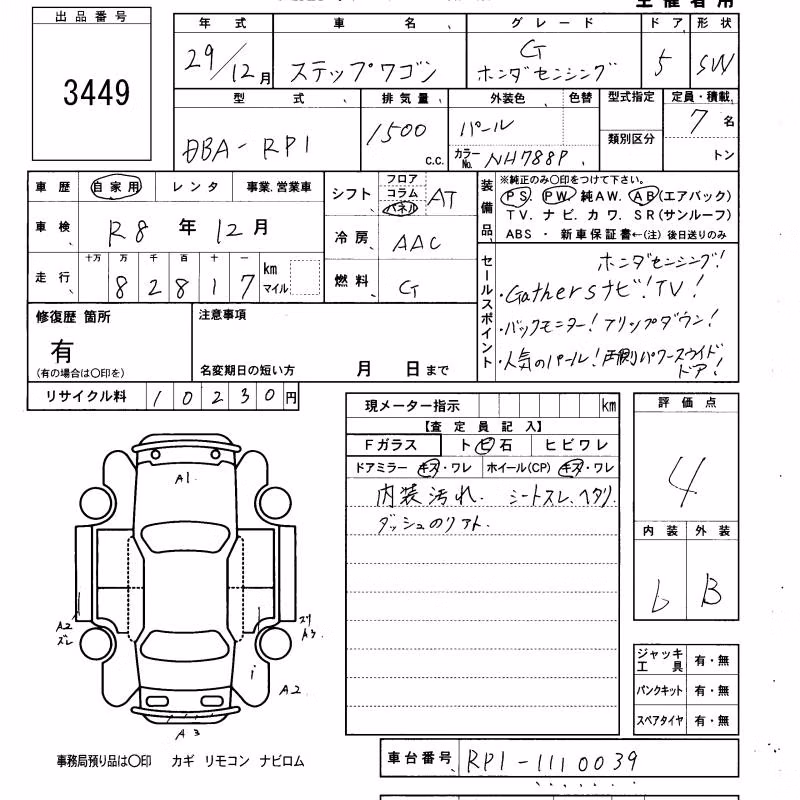 出品番号
3449
年式 車名 グレード ドア 形状
29/12月 ステップワゴン G ホンダセンシング 5 SW
型式 排気量 外装色 色替 型式指定 定員・積載
DBA-RP1 1500 c.c. パール 類別区分 7名
カラーNo. NH788P トン
車歴 自家用 レンタ 事業.営業車
車検 R8年12月
走行 十万 万 千 百 十 一
82817 km マイル
シフト フロア コラム パネル AT
冷房 AAC
燃料 G
装備品 ※純正のみ〇印をつけて下さい。
PS. PW. 純AW. AB(エアバック)
TV. ナビ. カワ. SR(サンルーフ)
ABS ・ 新車保証書←(注) 後日送りのみ
セールスポイント
ホンダセンシング!
・Gathersナビ!TV!
・バックモニター!フリップダウン!
・人気のパール!両側パワースライド
ドア!
修復歴 箇所
有
(有の場合は〇印を)
注意事項
名変期日の短い方 月 日まで
リサイクル料 10230円
現メーター指示 km
【査定員記入】
Fガラス ト ビ 石 ヒビワレ
ドアミラー キズ・ワレ ホイール(CP) キズ・ワレ
内装汚れ. シートスレ.ヘタリ
ダッシュのリアト.
評価点
4
内装 外装
b B
A1
A2
ズレ
ズリ
A3
i
A2
A3
ジャッキ工具 有・無
パンクキット 有・無
スペアタイヤ 有・無
事務局預り品は〇印 カギ リモコン ナビロム
車台番号 RP1-1110039